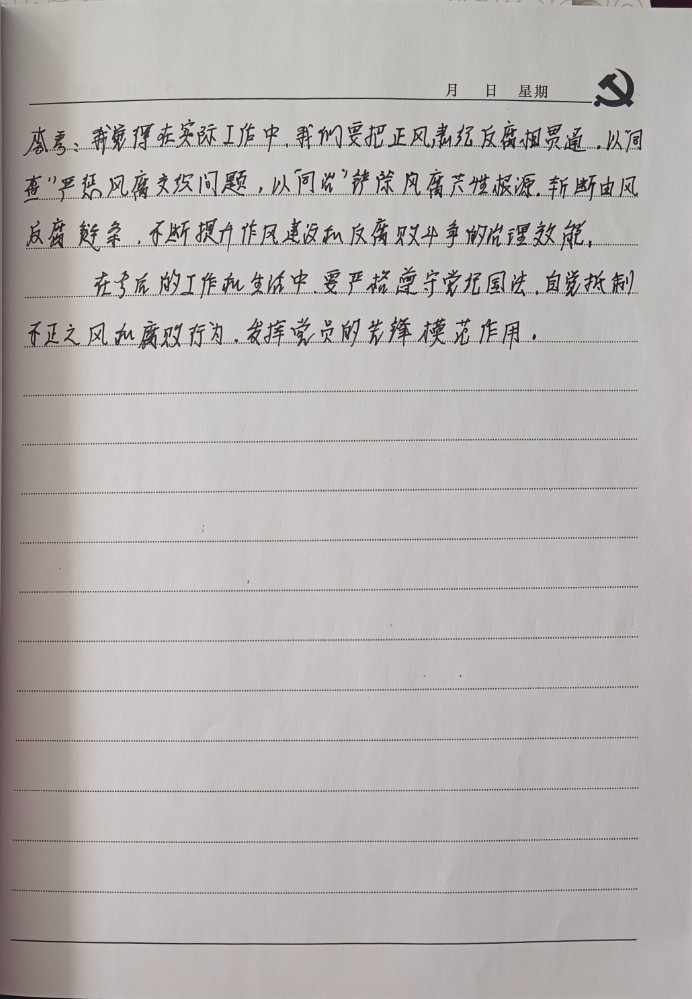 月 日 星期
李秀：我觉得在实际工作中，我们要把正风肃纪反腐相贯通，以“同
查”严惩风腐交织问题，以“同治”铲除风腐共性根源，斩断由风
及腐链条，不断提升作风建设和反腐败斗争的治理效能。
在今后的工作和生活中，要严格遵守党纪国法，自觉抵制
不正之风和腐败行为，发挥党员的先锋模范作用。